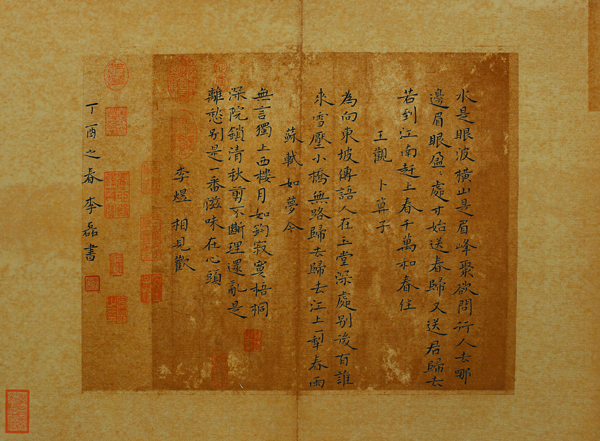 水是眼波橫山是眉峰聚欲問行人去哪
邊眉眼盈〻處才始送春歸又送君歸去
若到江南趕上春千萬和春住
王觀 卜算子
為向東坡傳語人在玉堂深處別後有誰
來雪壓小橋無路歸去歸去江上一犁春雨
蘇軾 如夢令
無言獨上西樓月如鉤寂寞梧桐
深院鎖清秋剪不斷理還亂是
離愁別是一番滋味在心頭
李煜 相見歡
丁酉之春 李磊書